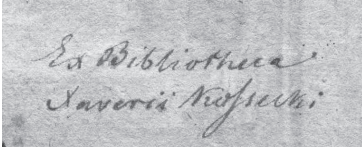 Ex Bibliotheca
Xaverii Kossecki